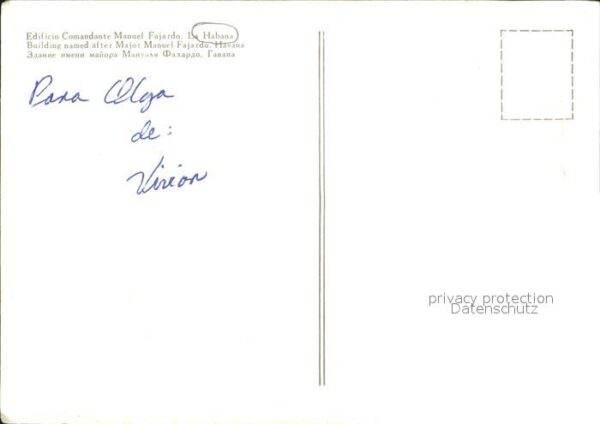 Edificio Comandante Manuel Fajardo. La Habana
Building named after Major Manuel Fajardo. Havana
Здание имени майора Мануэля Фахардо. Гавана
Para Olga
de:
privacy protection
Datenschutz